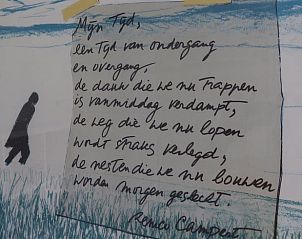 Mijn tijd,
een tijd van ondergang
en overgang,
de dauw die we nu trappen
is vanmiddag verdampt,
de weg die we nu lopen
wordt straks verlegd,
de nesten die we nu bouwen
worden morgen gesticht.
Remco Campert